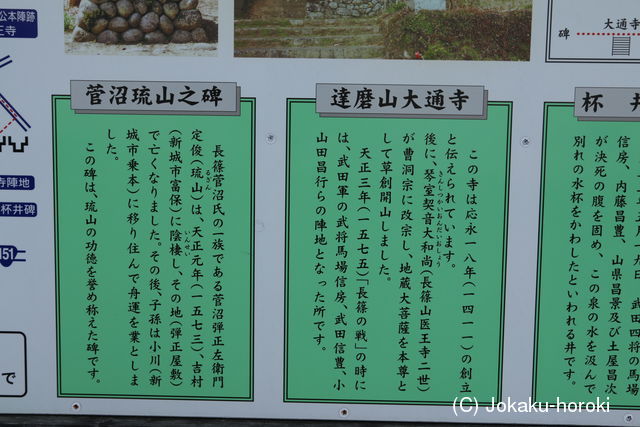 公本陣跡
王寺
寺陣地
杯井碑
151
で
碑
大通寺
杯井
信房、内藤昌豊、山県昌景及び土屋昌次
が決死の腹を固め、この泉の水を汲んで
別れの水杯をかわしたといわれる井です。
達磨山大通寺
この寺は応永一八年(一四一一)の創立
と伝えられています。
後に、琴室契音大和尚(長篠山医王寺二世)
きんしつかいおんだいおしょう
が曹洞宗に改宗し、地蔵大菩薩を本尊と
して草創開山しました。
天正三年(一五七五)「長篠の戦」の時に
は、武田軍の武将馬場信房、武田信豊、小
山田昌行らの陣地となった所です。
菅沼琉山之碑
長篠菅沼氏の一族である菅沼弾正左衛門
定俊(琉山)は、天正元年(一五七三)、吉村
るざん
(新城市富保)に陰棲し、その地(弾正屋敷)
いんせい
で亡くなりました。その後、子孫は小川(新
城市乗本)に移り住んで舟運を業としま
した。
この碑は、琉山の功徳を誉め称えた碑です。
(C) Jokaku-horoki